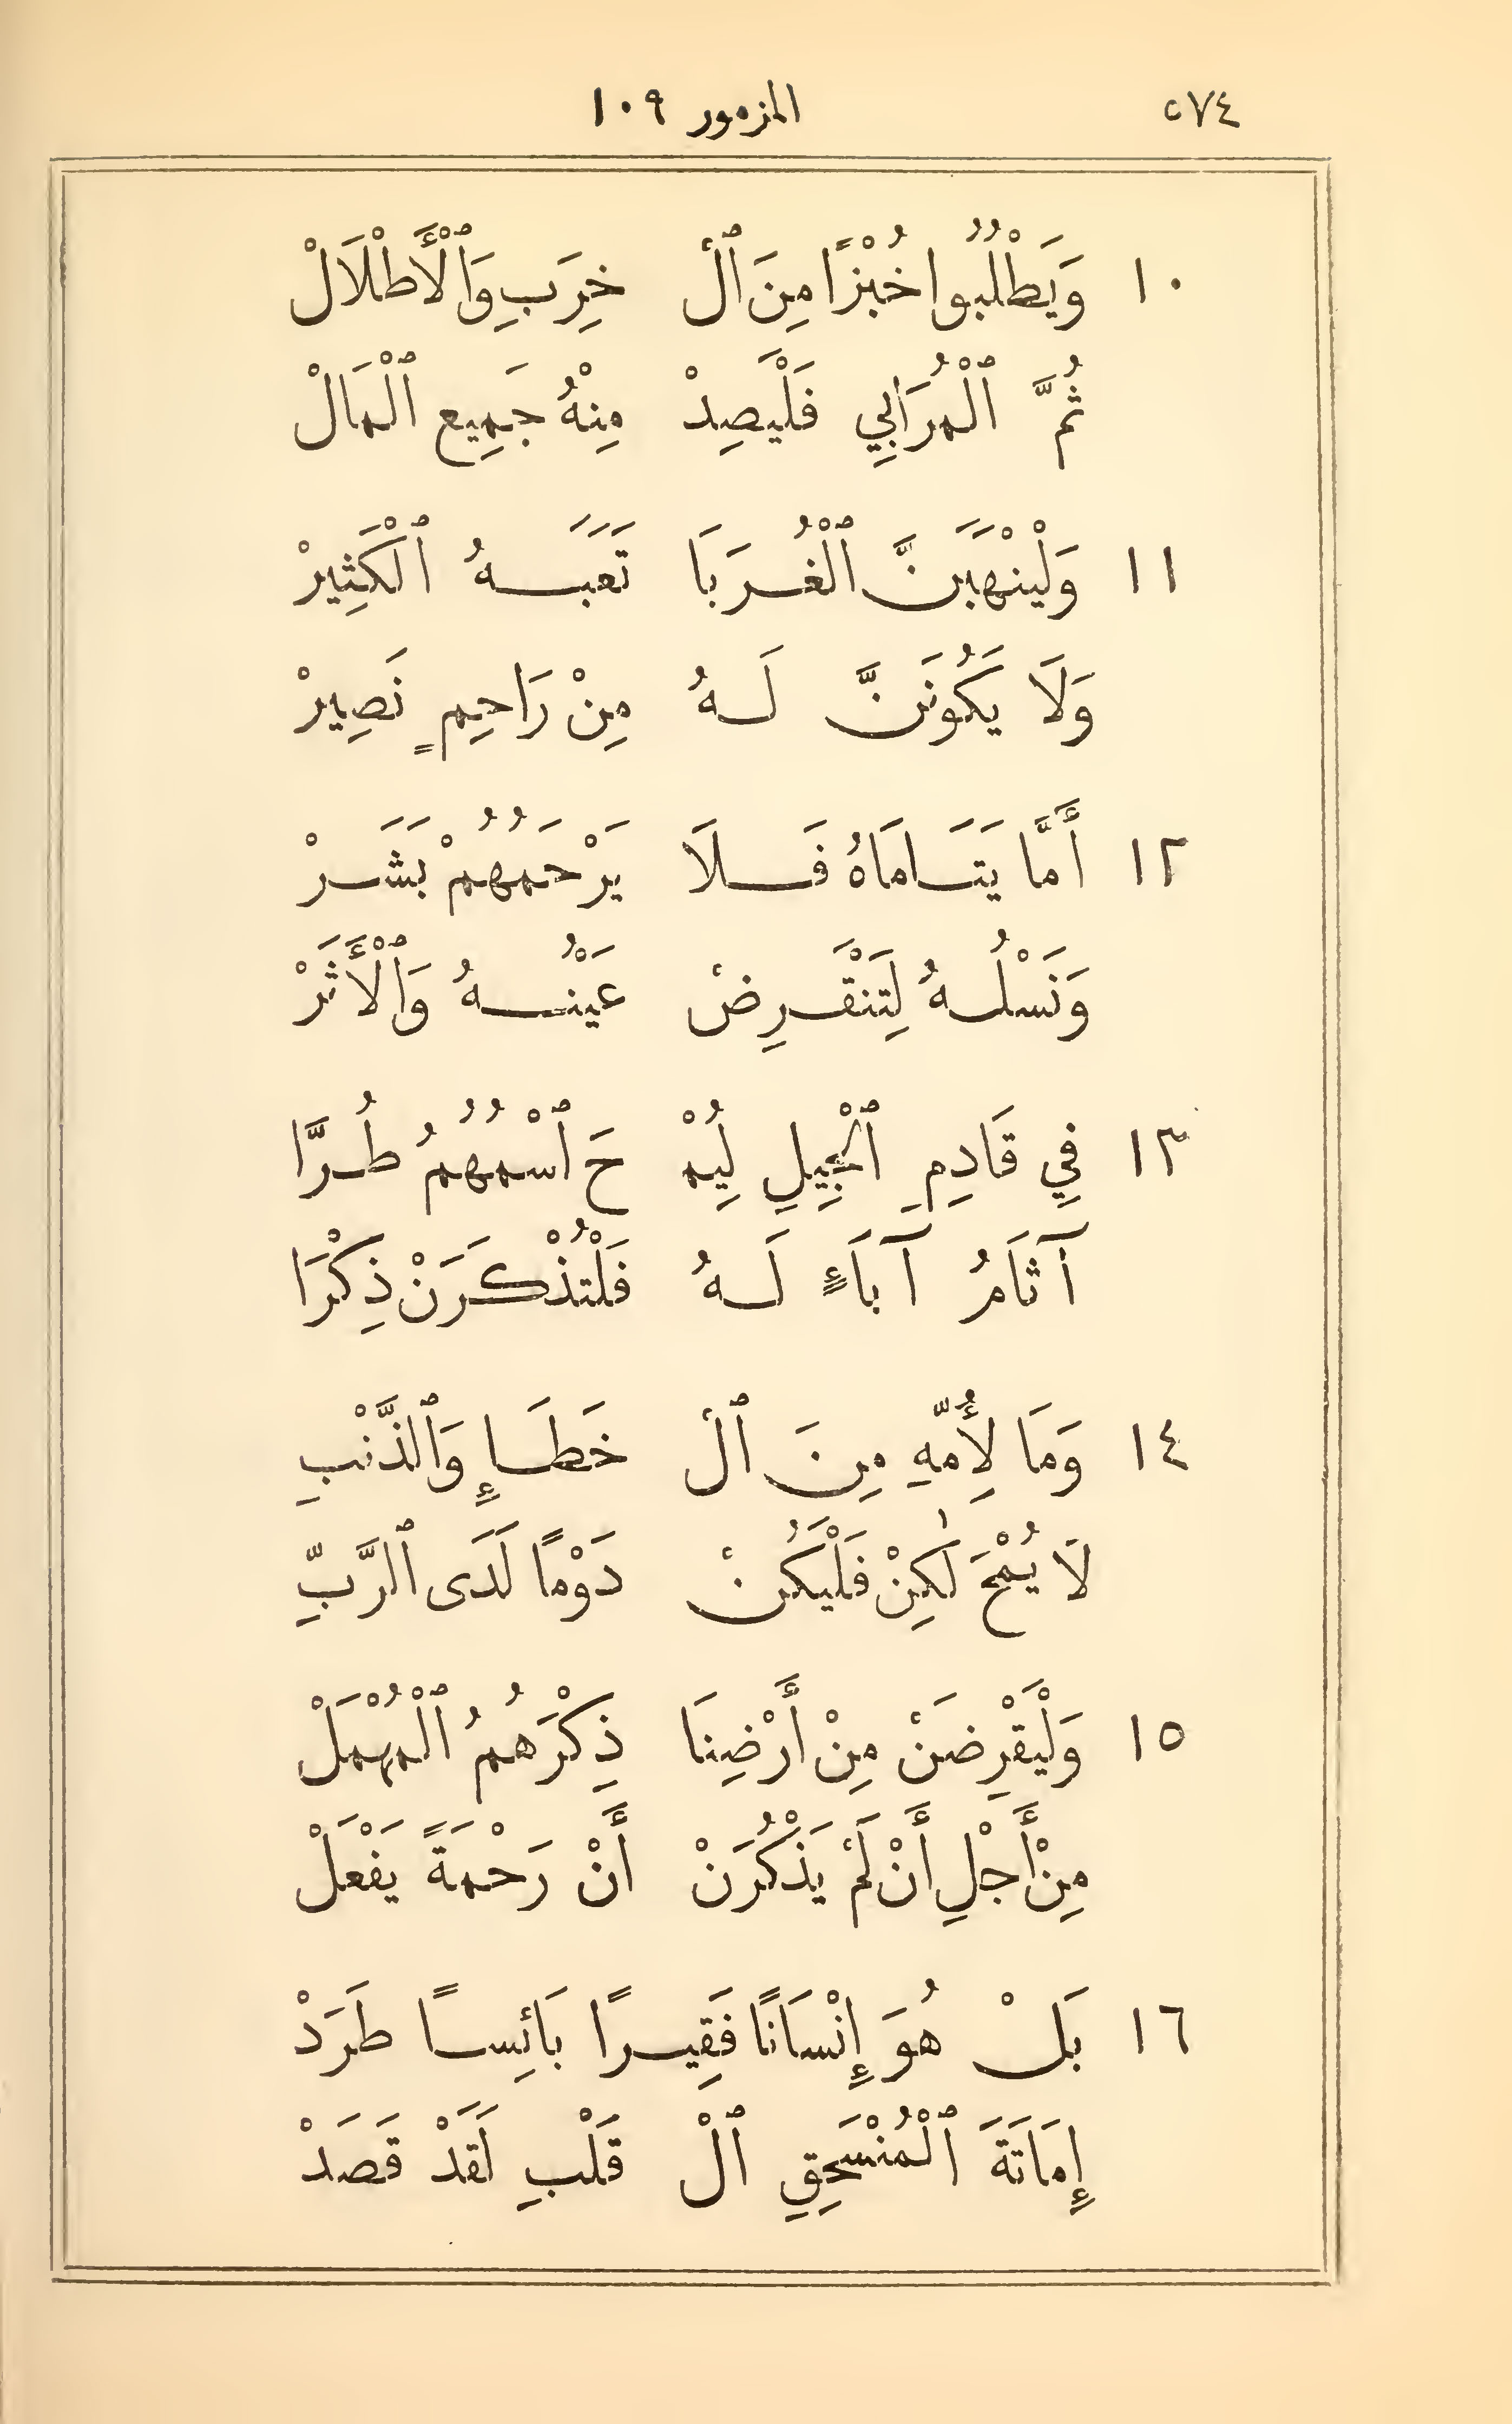 ٥٧٤ المزمور ١٠٩
١٠ وَيَطْلُبُوا خُبْزًا مِنَ ٱلْ خِرَبِ وَٱلْأَطْلَالْ
ثُمَّ ٱلْمُرَابِي فَلْيَصِدْ مِنْهُ جَمِيعَ ٱلْمَالْ
١١ وَلْيَنْهَبَنَّ ٱلْغُرَبَا تَعَبَهُ ٱلْكَثِيرْ
وَلَا يَكُونَنَّ لَهُ مِنْ رَاحِمٍ نَصِيرْ
١٢ أَمَّا يَتَامَاهُ فَلَا يَرْحَمُهُمْ بَشَرْ
وَنَسْلُهُ لِتَنْقَرِضْ عَيْنُهُ وَٱلْأَثَرْ
١٣ فِي قَادِمِ ٱلْجِيلِ لِيُمْ حَ ٱسْمُهُمُ طُرَّا
آثَامُ آبَاءٍ لَهُ فَلْتُذْكَرَنْ ذِكْرَا
١٤ وَمَا لِأُمِّهِ مِنَ ٱلْ خَطَاءِ وَٱلذَّنْبِ
لَا يُمْحَ لٰكِنْ فَلْيَكُنْ دَوْمًا لَدَى ٱلرَّبِّ
١٥ وَلْيَقْرِضَنْ مِنْ أَرْضِنَا ذِكْرَهُمُ ٱلْمُهْمَلْ
مِنْ أَجْلِ أَنْ لَمْ يَذْكُرَنْ أَنْ رَحْمَةً يَفْعَلْ
١٦ بَلْ هُوَ إِنْسَانًا فَقِيرًا بَائِسًا طَرَدْ
إِمَاتَةَ ٱلْمُنْسَحِقِ ٱلْ قَلْبِ لَقَدْ قَصَدْ